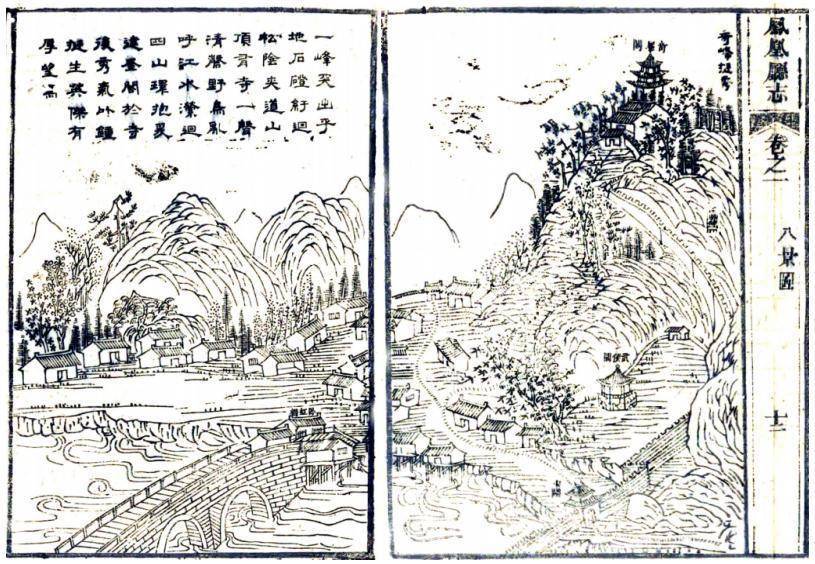 鳳凰廳志
卷之一
八景圖
奇峰挺秀
武侯
一峰突出平
地石磴紆迴
松陰夾道山
頂有寺一聲
清磬野鳥亂
呼江水瀠迴
四山環抱爰
建臺閣於
後秀氣以鍾
挺生英傑有
厚望焉